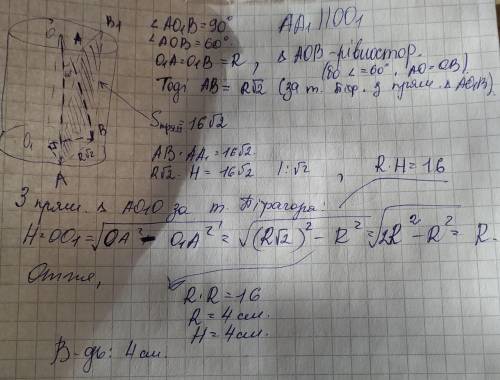 O A₁ B₁
∠AO₁B=90° AA₁ || OO₁
∠AOB=60°
O₁A=O₁B=R, Δ AOB-рівностор.
(бо ∠=60°, AO=OB)
Тоді AB = R√2 (за т. Піф. з прям. Δ AO₁B)
Sпря = 16√2
O₁ B
R√2
A
AB·AA₁=16√2
R√2·H=16√2 |:√2 , R·H=16
З прям. Δ AO₁O за т. Піфагора:
H=OO₁=√OA²-O₁A²=√(R√2)²-R²=√2R²-R²=R.
Отже,
R·R=16
R=4 см.
H=4 см.
В-дь: 4 см.